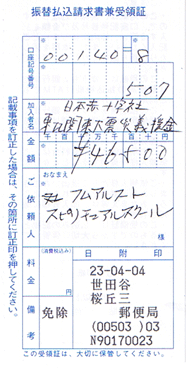 振替払込請求書兼受領証
口座記号番号
00140-8
507
加入者名
日本赤十字社
東北関東大震災義援金
金額
千百十万千百十円
¥46500
ご依頼人
おなまえ
スピリチュアルスクール
様
料金
(消費税込み)
免除
備考
日附印
23-04-04
世田谷
桜丘三
郵便局
(00503 )03
N90170023
この受領証は、大切に保管してください。
記載事項を訂正した場合は、その箇所に訂正印を押してください。